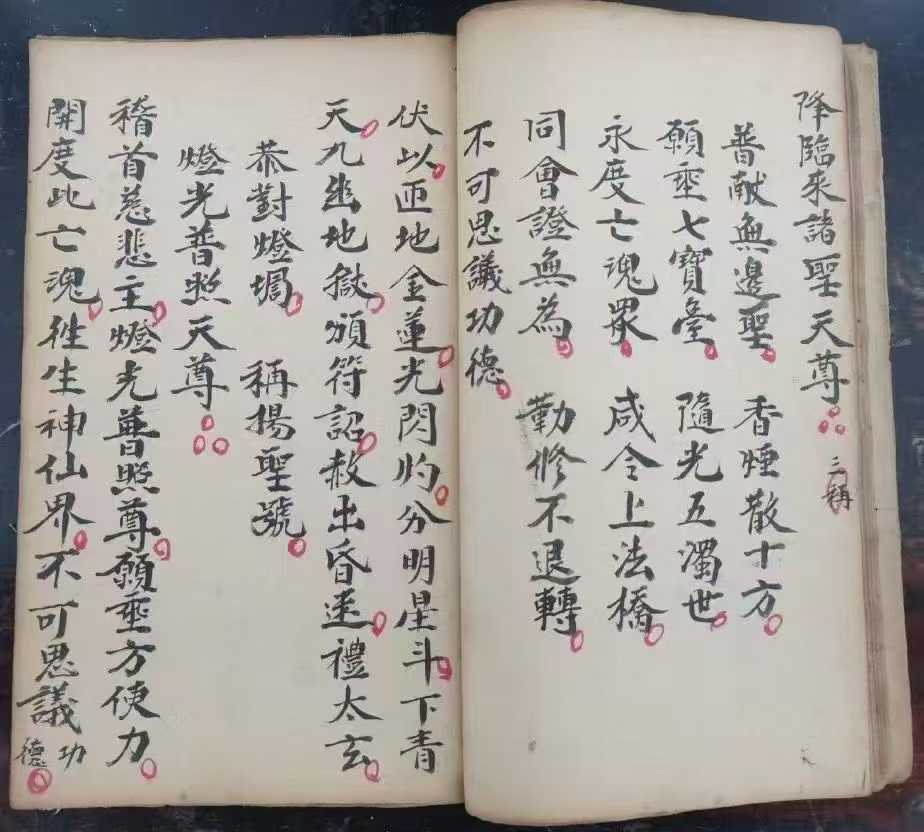 降臨來諸聖天尊 三稱
普献無邊聖 香煙散十方
願垂七寶臺 隨光五濁世
永度亡魂眾 咸令上法橋
同會證無為 勤修不退轉
不可思議功德
伏以匝地金蓮光閃灼分明星斗下青
天九幽地獄頒符詔赦出昏迷禮太玄
恭對燈壇 稱揚聖號
燈光普照天尊
稽首慈悲主燈光普照尊願垂方便力
開度此亡魂徃生神仙界不可思議功德